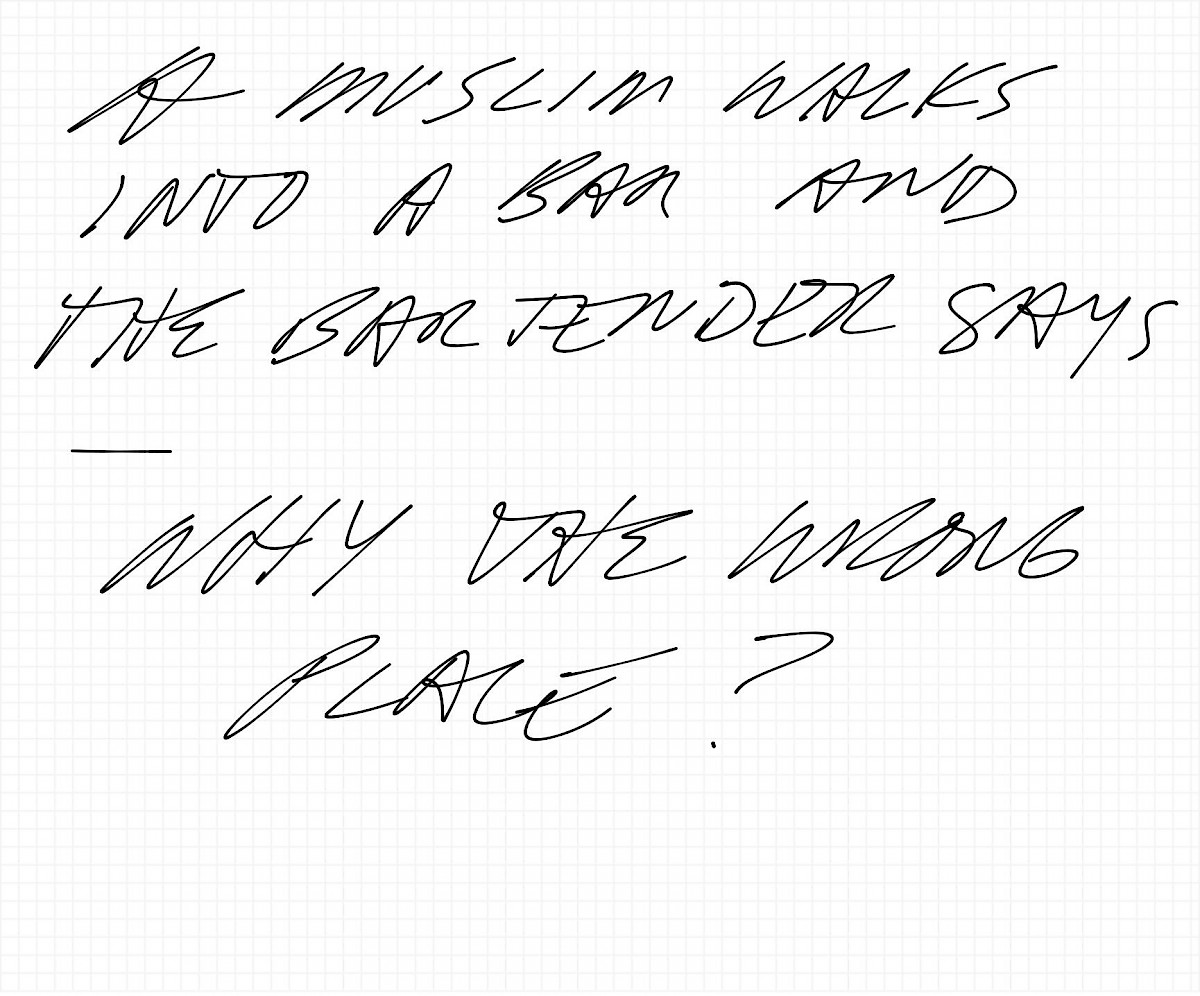 A MUSLIM WALKS
INTO A BAR AND
THE BARTENDER SAYS
—
WHY THE WRONG
PLACE?